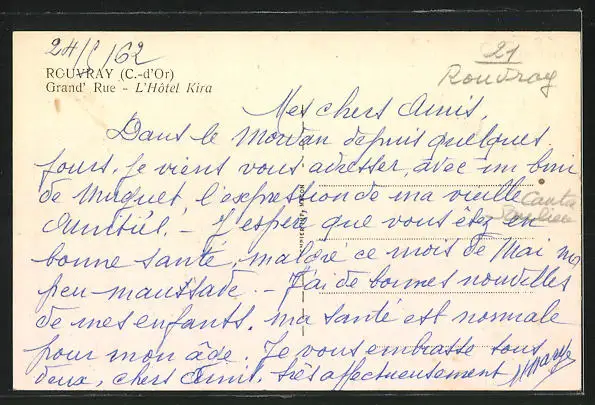 24/5/62
21
Rouvray
ROUVRAY (C.-d'Or)
Grand' Rue - L'Hôtel Kira
Mes chers Amis,
Dans le Morvan depuis quelques
jours, je viens vous adresser, avec un brin
de Muguet, l'expression de ma vieille
Amitié. - J'espère que vous êtes en
bonne santé, malgré ce mois de Mai un
peu maussade. - J'ai de bonnes nouvelles
de mes enfants. ma santé est normale
pour mon âge. Je vous embrasse tous
deux, chers Amis, très affectueusement